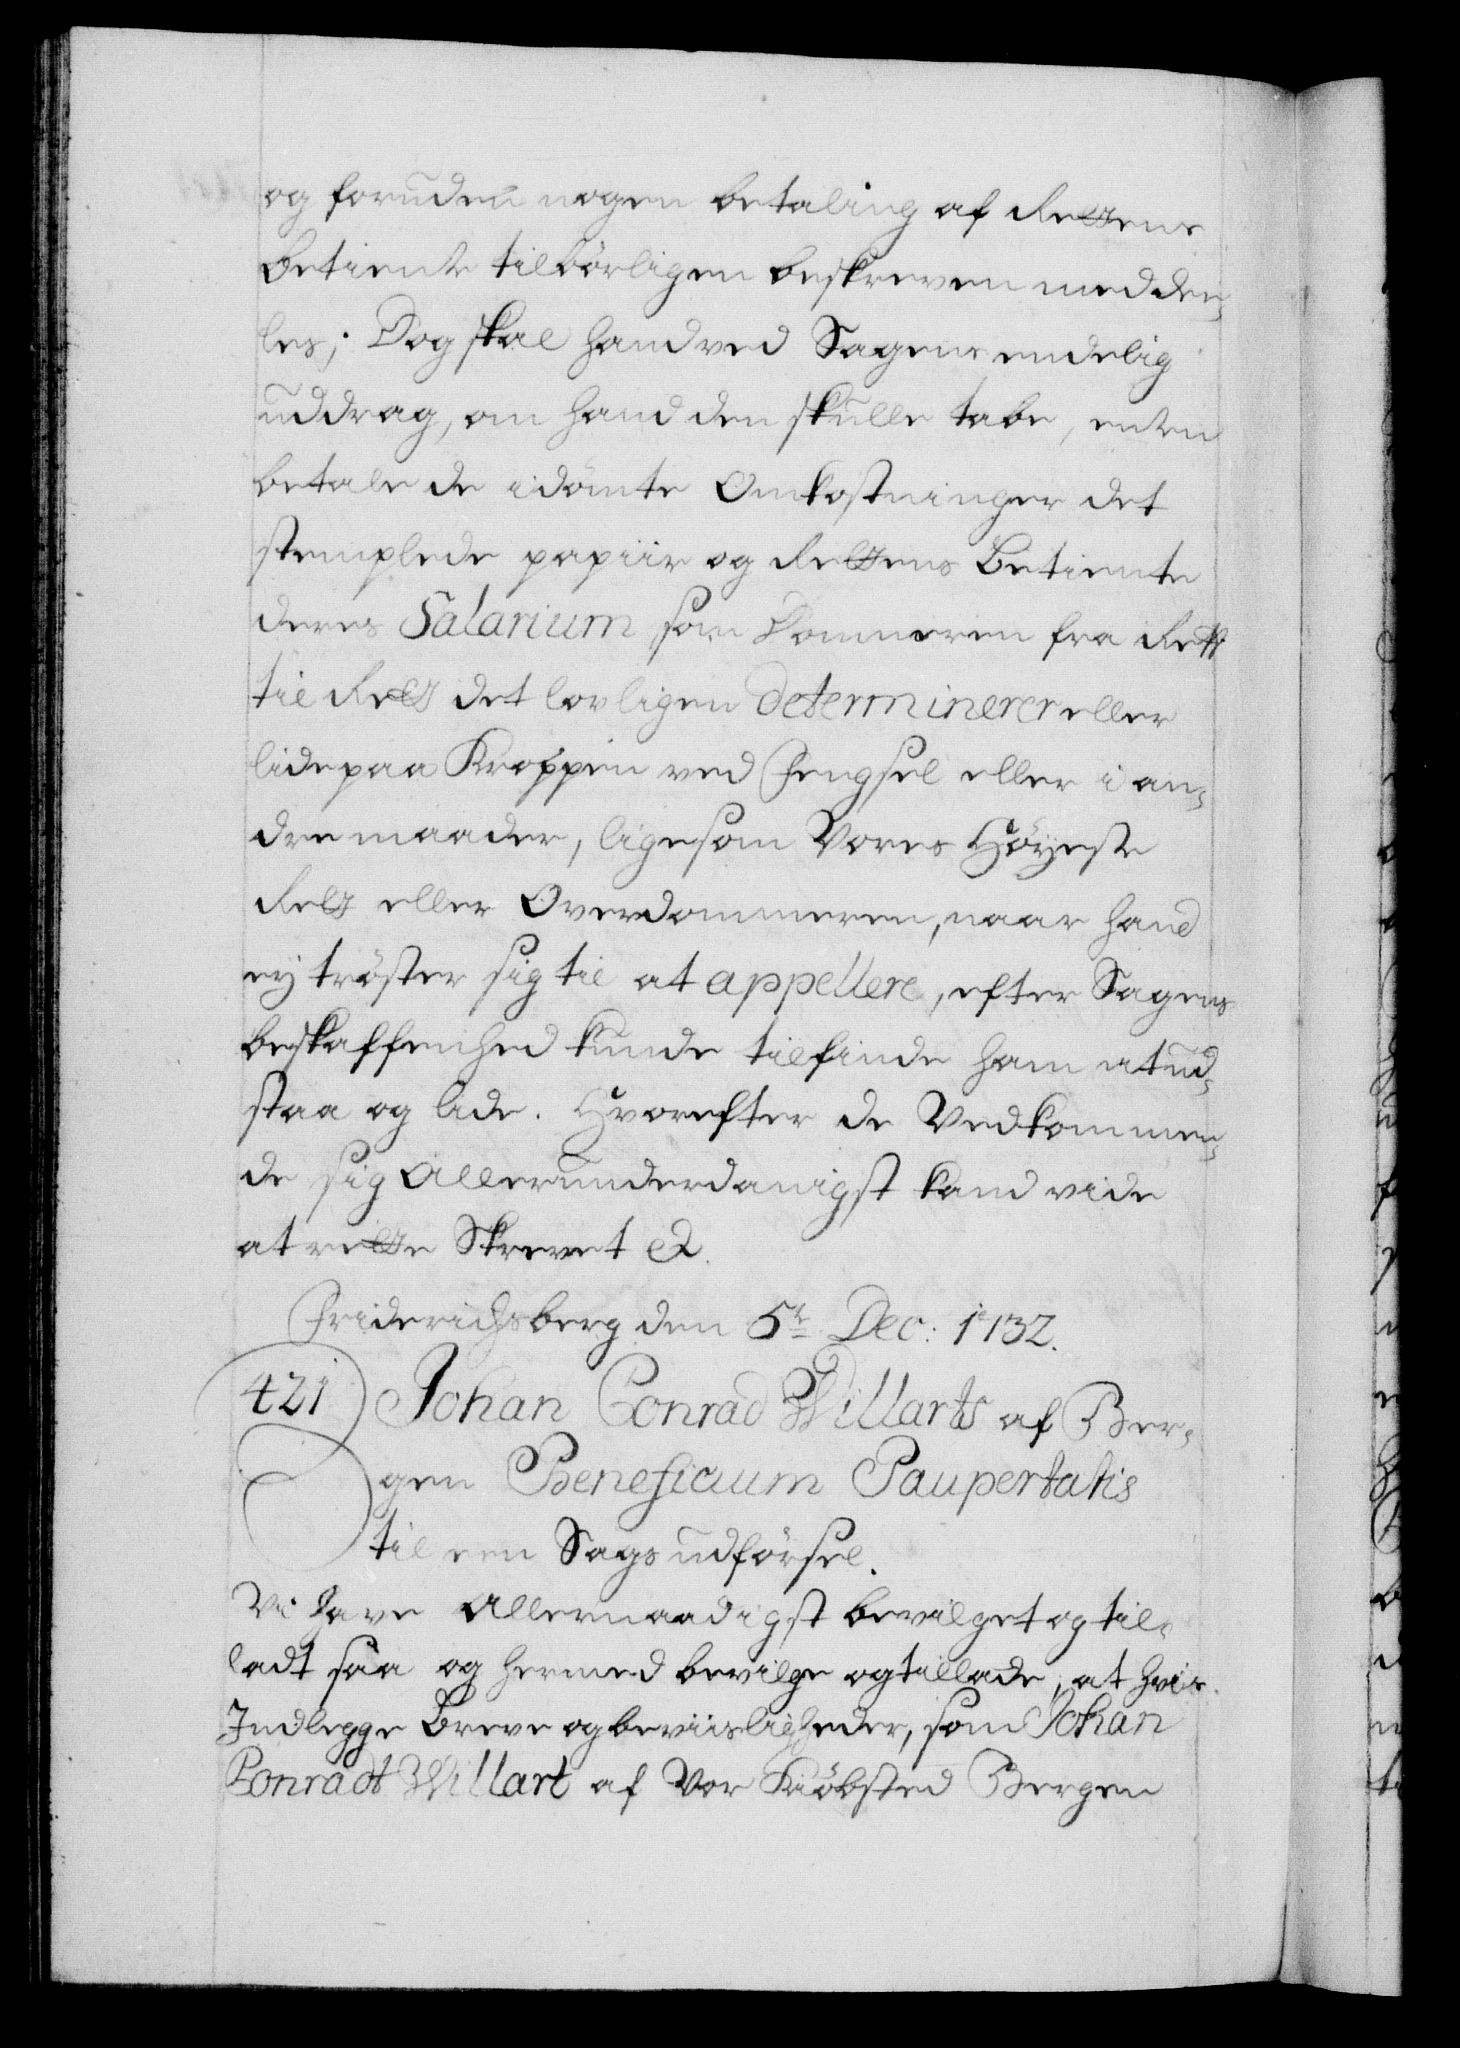 og foruden nogen betaling af Rettens
Betiente tilbörligen beskreven meddee¬
les, Dog skal hand ved Sagens endelig
uddrag, om hand den skulle tabe, enten
betale de idömte Omkostninger det
stemplede papiir og Rettens Betiente
deres Salarium, som Dommeren fra Rett
til Rett det lovligen determinerer eller
lide paa Kroppen ved Fengsel eller i an¬
dre maader, ligesom Vores Höyeste
Rett eller Overdommeren, naar hand
ey tröster sig til at appellere, efter Sagens
beskaffenhed kunde tilfinde ham at ud¬
staa og lide. Hvorefter de Vedkommen¬
de sig Allerunderdanigst kand vide
at rette Skrevet &.
Friderichsberg den 5te Dec: 1732.
421 Johan Conrad Willarts af Ber¬
gen Beneficium Paupertatis
til een Sags udförsel.
Vi have Allernaadigst bevilget og til¬
ladt saa og hermed bevilge og tillade, at hvis
Indlegge Breve og beviisligheder, som Johan
Conradt Willart af Vor Kiöbsted Bergen